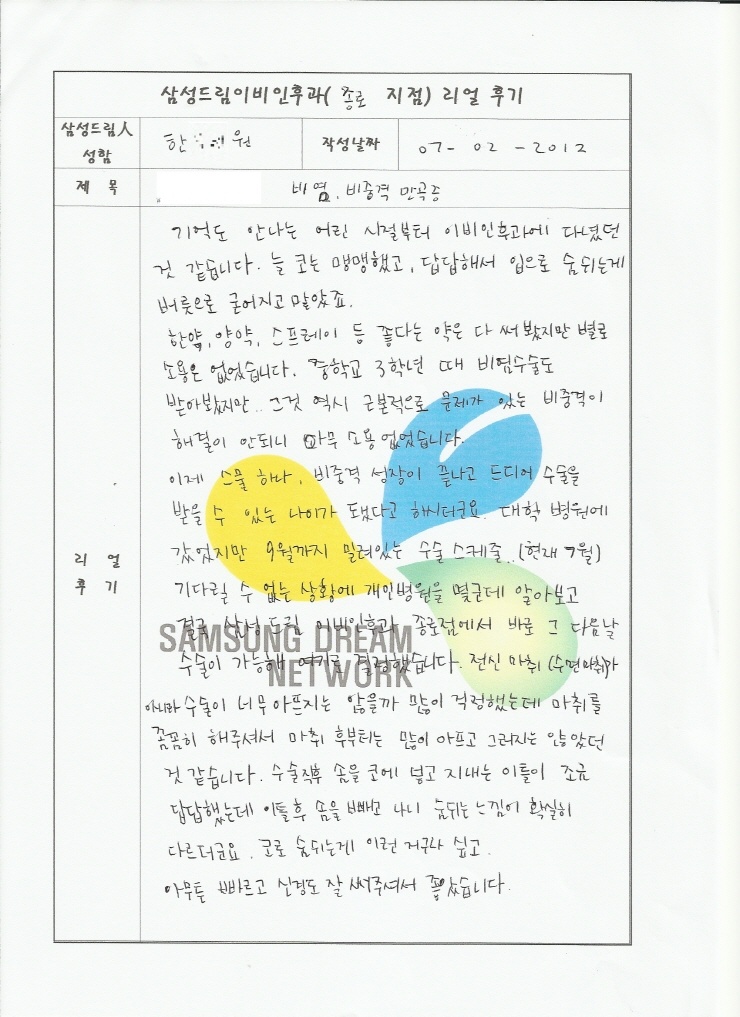 삼성드림이비인후과( 종로 지점) 리얼 후기
삼성드림人 성함
한 원
작성날짜
07- 02 -2012
제 목
비염, 비중격 만곡증
리 얼 후 기
기억도 안나는 어린 시절부터 이비인후과에 다녔던
것 같습니다. 늘 코는 맹맹했고, 답답해서 입으로 숨쉬는게
버릇으로 굳어지고 말았죠.
한약, 양약, 스프레이 등 좋다는 약은 다 써봤지만 별로
소용은 없었습니다. 중학교 3학년 때 비염수술도
받아봤지만.. 그것 역시 근본적으로 문제가 있는 비중격이
해결이 안되니 아무 소용없었습니다.
이제 스물 하나, 비중격 성장이 끝나고 드디어 수술을
받을 수 있는 나이가 됐다고 하시더군요. 대학 병원에
갔었지만 9월까지 밀려있는 수술 스케줄..(현재 7월)
기다릴 수 없는 상황에 개인병원을 몇군데 알아보고
결국 삼성 드림 이비인후과 종로점에서 바로 그 다음날
수술이 가능해 여기로 결정했습니다. 전신 마취 (수면마취)가
아니라 수술이 너무 아프지는 않을까 많이 걱정했는데 마취를
꼼꼼히 해주셔서 마취 후부터는 많이 아프고 그러지는 않았던
것 같습니다. 수술직후 솜을 코에 넣고 지내는 이틀이 조금
답답했는데 이틀후 솜을 빼고 나니 숨쉬는 느낌이 확실히
다르더군요. 코로 숨쉬는게 이런 거구나 싶고.
아무튼 빠르고 신경도 잘 써주셔서 좋았습니다.
SAMSUNG DREAM
NETWORK